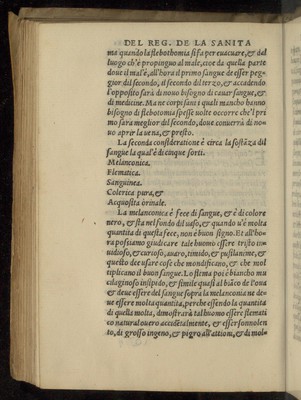 DEL REG. DE LA SANITA
ma quando la flebothomia si fa per euacuare, & dal
luogo ch'è propinquo al male, cioe da quella parte
doue il mal'è, all'hora il primo sangue de esser peg-
gior dil secondo, il secondo dil terzo, & accadendo
l'opposito sarà di nouo bisogno di cauar sangue, &
di medicine. Ma ne corpi sani i quali mancho hanno
bisogno di flebotomia spesse uolte occorre che'l pri
mo sara meglior dil secondo, doue conuerrà di no-
uo aprir la uena, & presto.
La seconda consideratione è circa la sostãza dil
sangue la qual'è di cinque sorti.
Melanconica.
Flematica.
Sanguinea.
Colerica pura, &
Acquosita orinale.
La melanconica è fece di sangue, & è di colore
nero, & sta nel fondo dil uaso, & quando u'è molta
quantita di questa fece, non è buon signo. Et all'ho-
ra possiamo giudicare tale huomo essere tristo in-
uidioso, & curioso, auaro, timido, & pusilanime, &
questo dee usare cose che mondificano, & che mol
tiplicano il buon sangue. Lo flema poi è biancho mu
cilaginoso insipido, & simile quasi al biãco de l'oua
& deue essere del sangue sopra la melanconia ne de-
ue essere molta quantita, perche essendo la quantità
di quella molta, dimostrarà tal huomo essere flemati
co naturale ouero accidẽtalmente, & esser sonnolen
to, di grosso ingeno, & pigro all'attioni, & di mol-